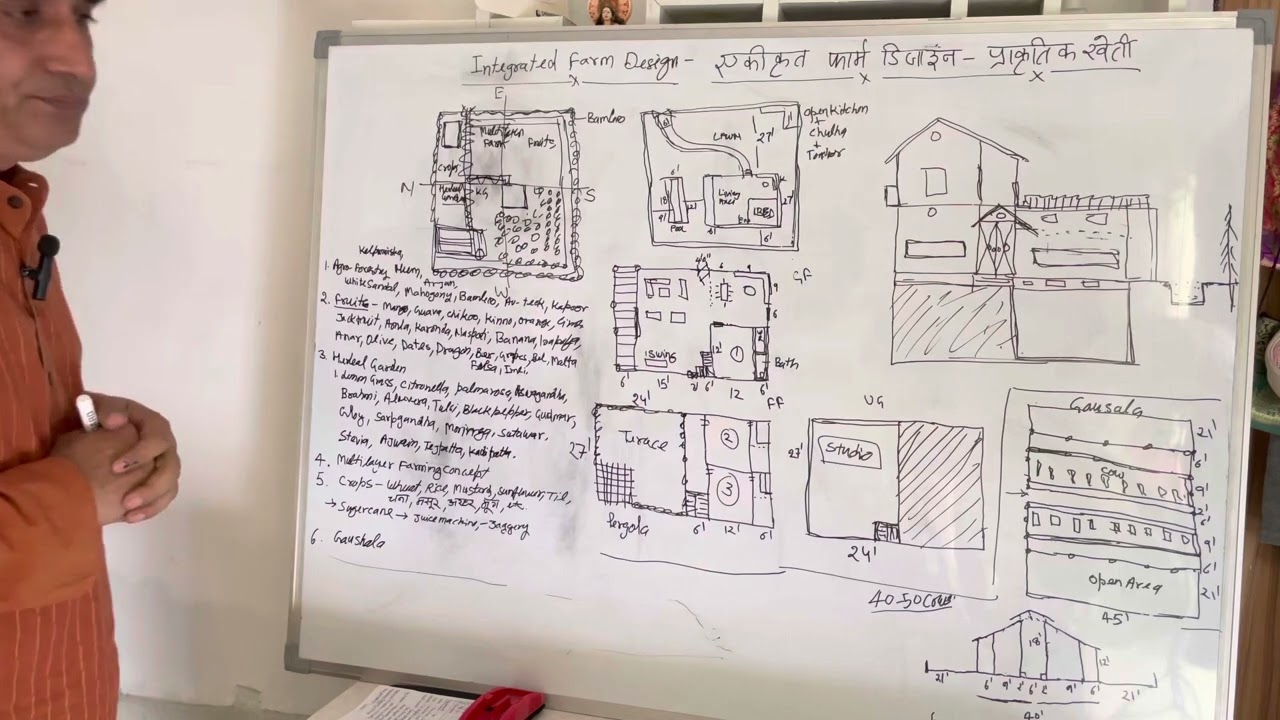 Integrated Farm Design - एकीकृत फार्म डिजाइन - प्राकृतिक खेती
E
Bamboo
Multilayer
Farm
Fruits
Crops
N
S
KG
Herbal
Garden
W
LAWN
27'
Open Kitchen
+
Chulha
+
Tandoor
6'
18'
9'
Pool
12'
Living
Area
BED
27'
6'
6'
1. Agro Forestry
White Sandal, Mahogony, Bamboo,
2. Fruits - Mango, Guava, Chikoo, Kinno, orange,
Jackfruit, Amla, Karonda, Naspati, Banana,
Anar, Olive, Dates, Dragon, Ber, Grapes, Bel, Malta
Falsa, Imli,
3. Herbal Garden
1. Lemon Grass, Citronella, palmarosa, Ashwagandha,
Brahmi, Tulsi, Black pepper, Gudmar,
Giloy, Sarpgandha, Moringa, Satawar,
Stevia, Ajwain, Tejpatta,
4. Multilayer Farming Concept
5. Crops - Wheat, Rice, Mustard, Sunflower, Til,
चना, मसूर, अरहर, मूंग, etc.
→ Sugercane → Juice machine, - Jaggery
6. Gaushala
GF
6
9
6
12'
1
Swing
Bath
6'
15'
6'
12
6'
24'
FF
27'
Terace
2
3
Pergola
6'
12'
6'
UG
27'
Studio
24'
40-50 Cows
Gausala
21'
6'
Cow
9'
2'
6'
9'
6'
Open Area
21'
45'
18'
12'
21'
6'
9'
2'
6'
2'
9'
6'
21'
40'